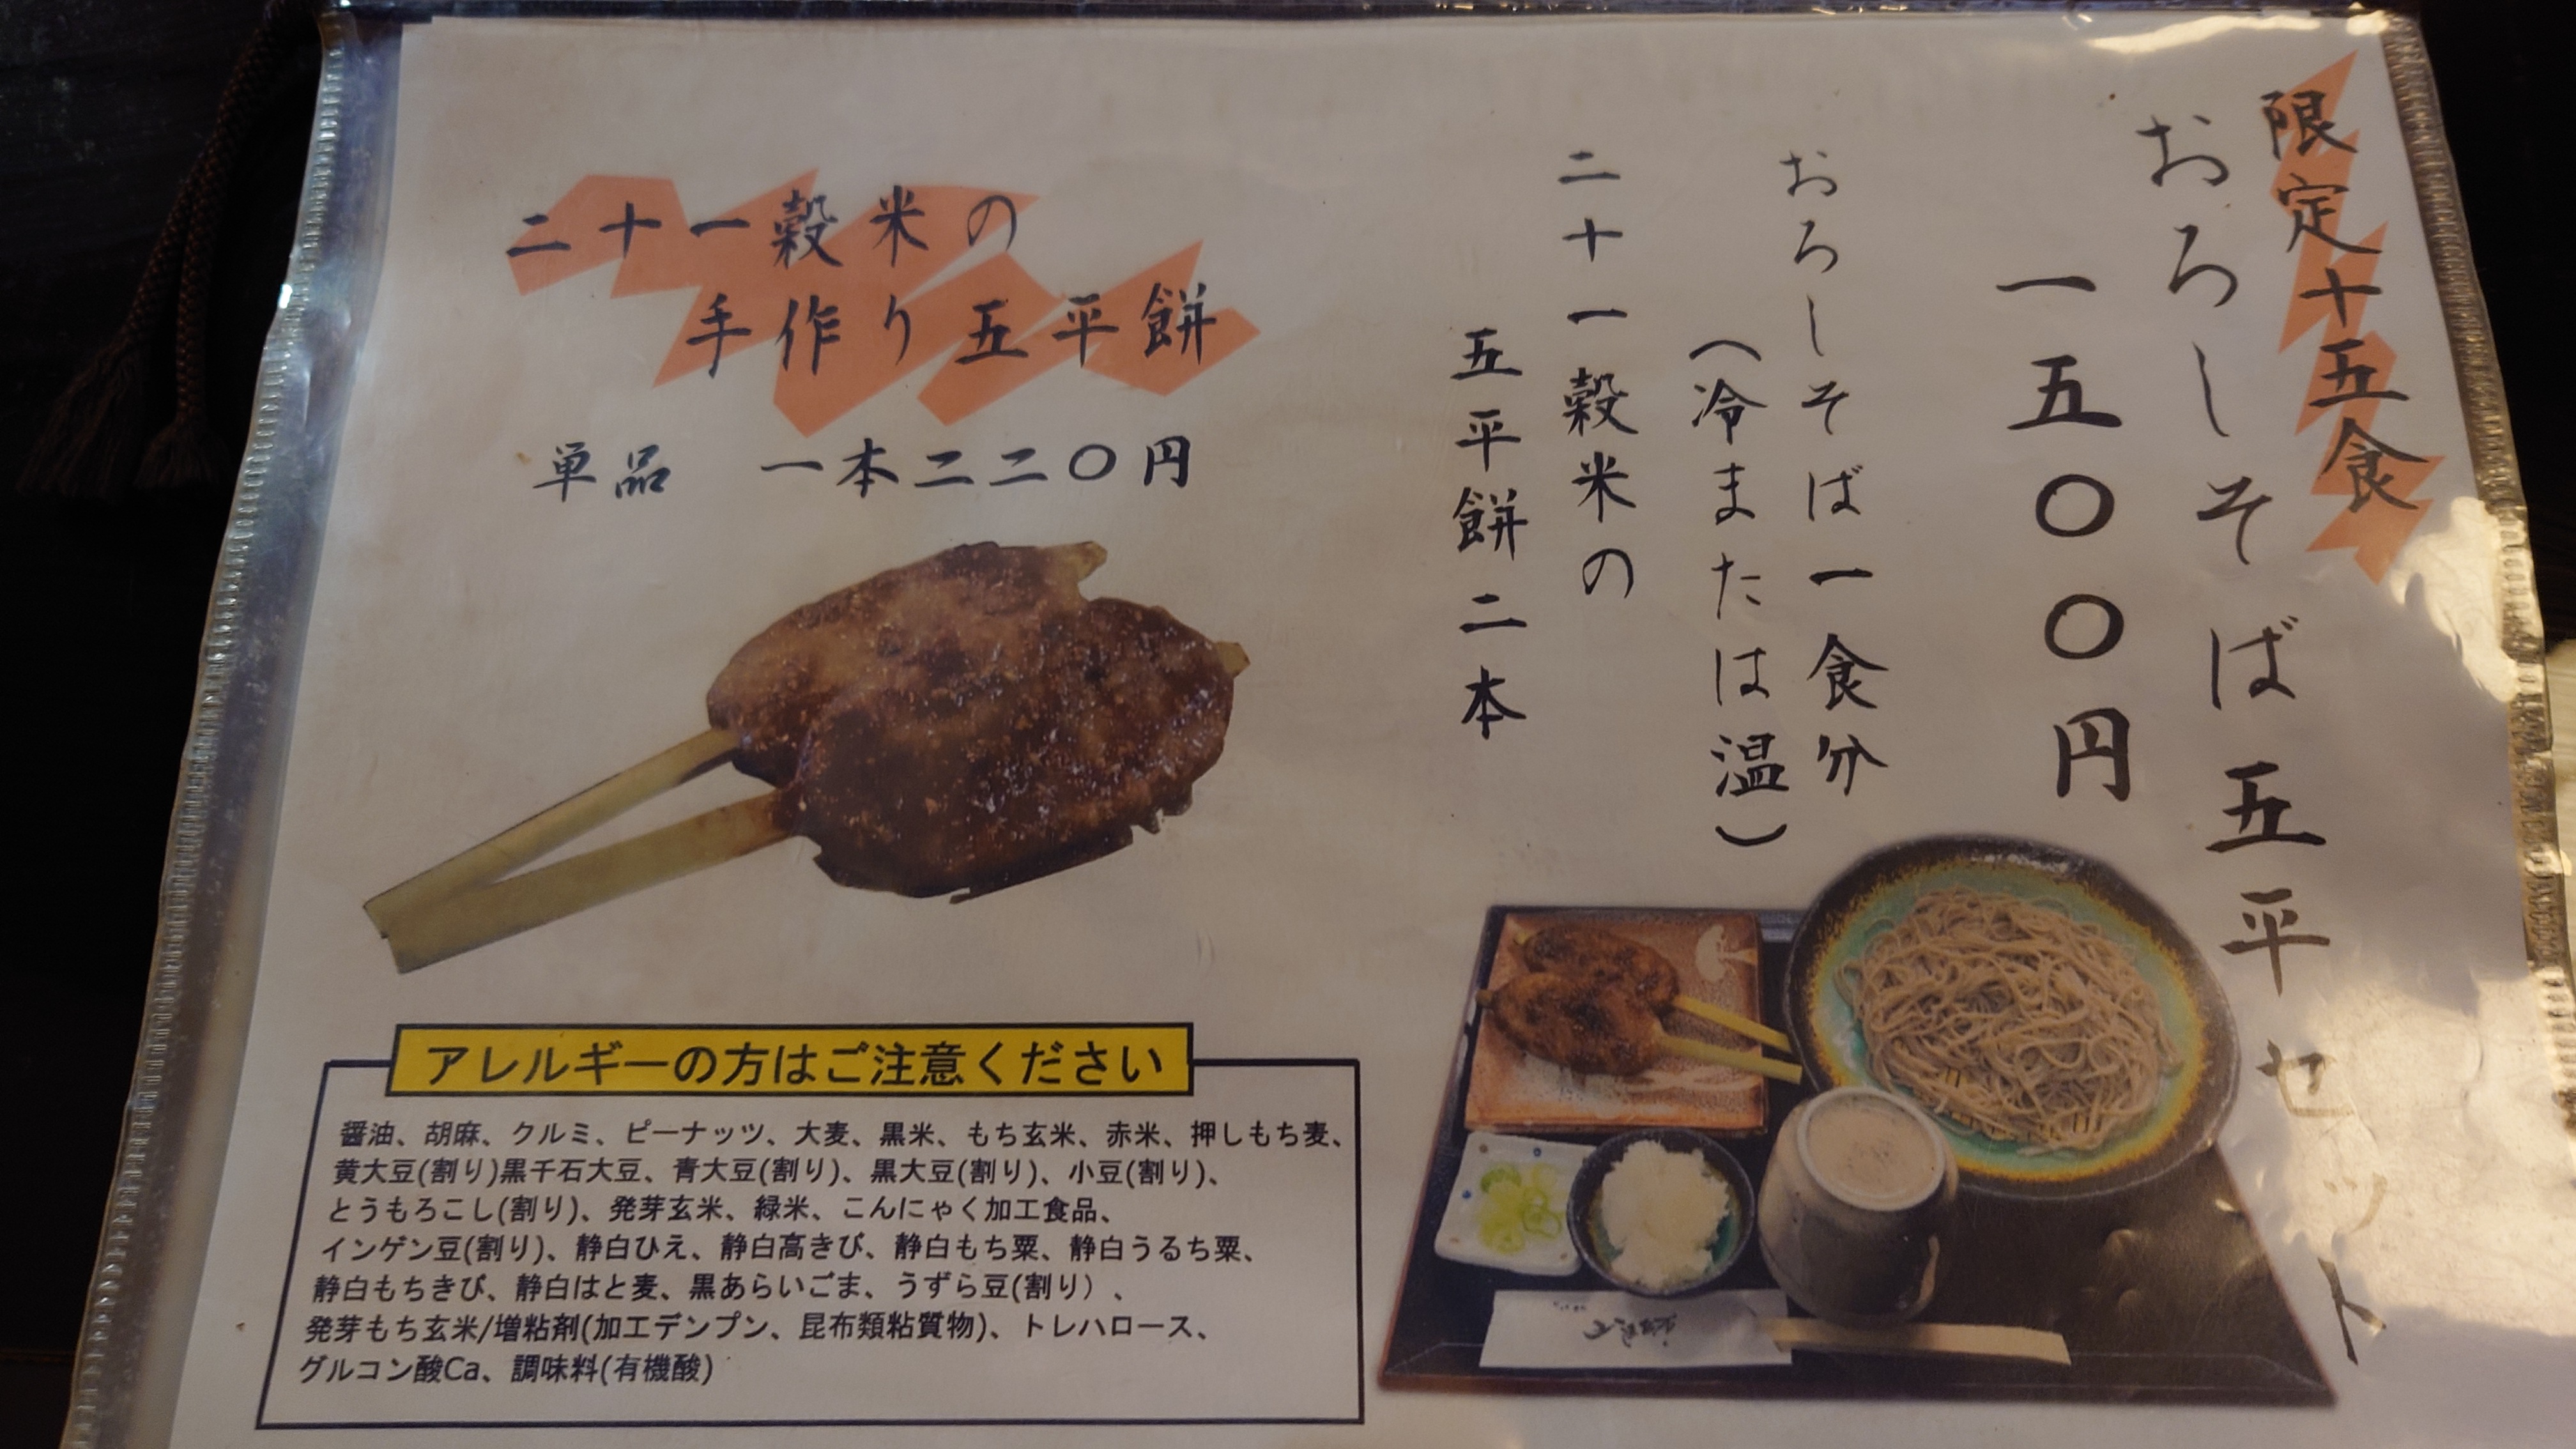 限定十五食
おろしそば五平セット
一五〇〇円
おろしそば一食分
（冷または温）
二十一穀米の
五平餅二本
二十一穀米の
手作り五平餅
単品 一本二二〇円
アレルギーの方はご注意ください
醤油、胡麻、クルミ、ピーナッツ、大麦、黒米、もち玄米、赤米、押しもち麦、
黄大豆(割り)黒千石大豆、青大豆(割り)、黒大豆(割り)、小豆(割り)、
とうもろこし(割り)、発芽玄米、緑米、こんにゃく加工食品、
インゲン豆(割り)、静白ひえ、静白高きび、静白もち粟、静白うるち粟、
静白もちきび、静白はと麦、黒あらいごま、うずら豆(割り）、
発芽もち玄米/増粘剤(加工デンプン、昆布類粘質物)、トレハロース、
グルコン酸Ca、調味料(有機酸)